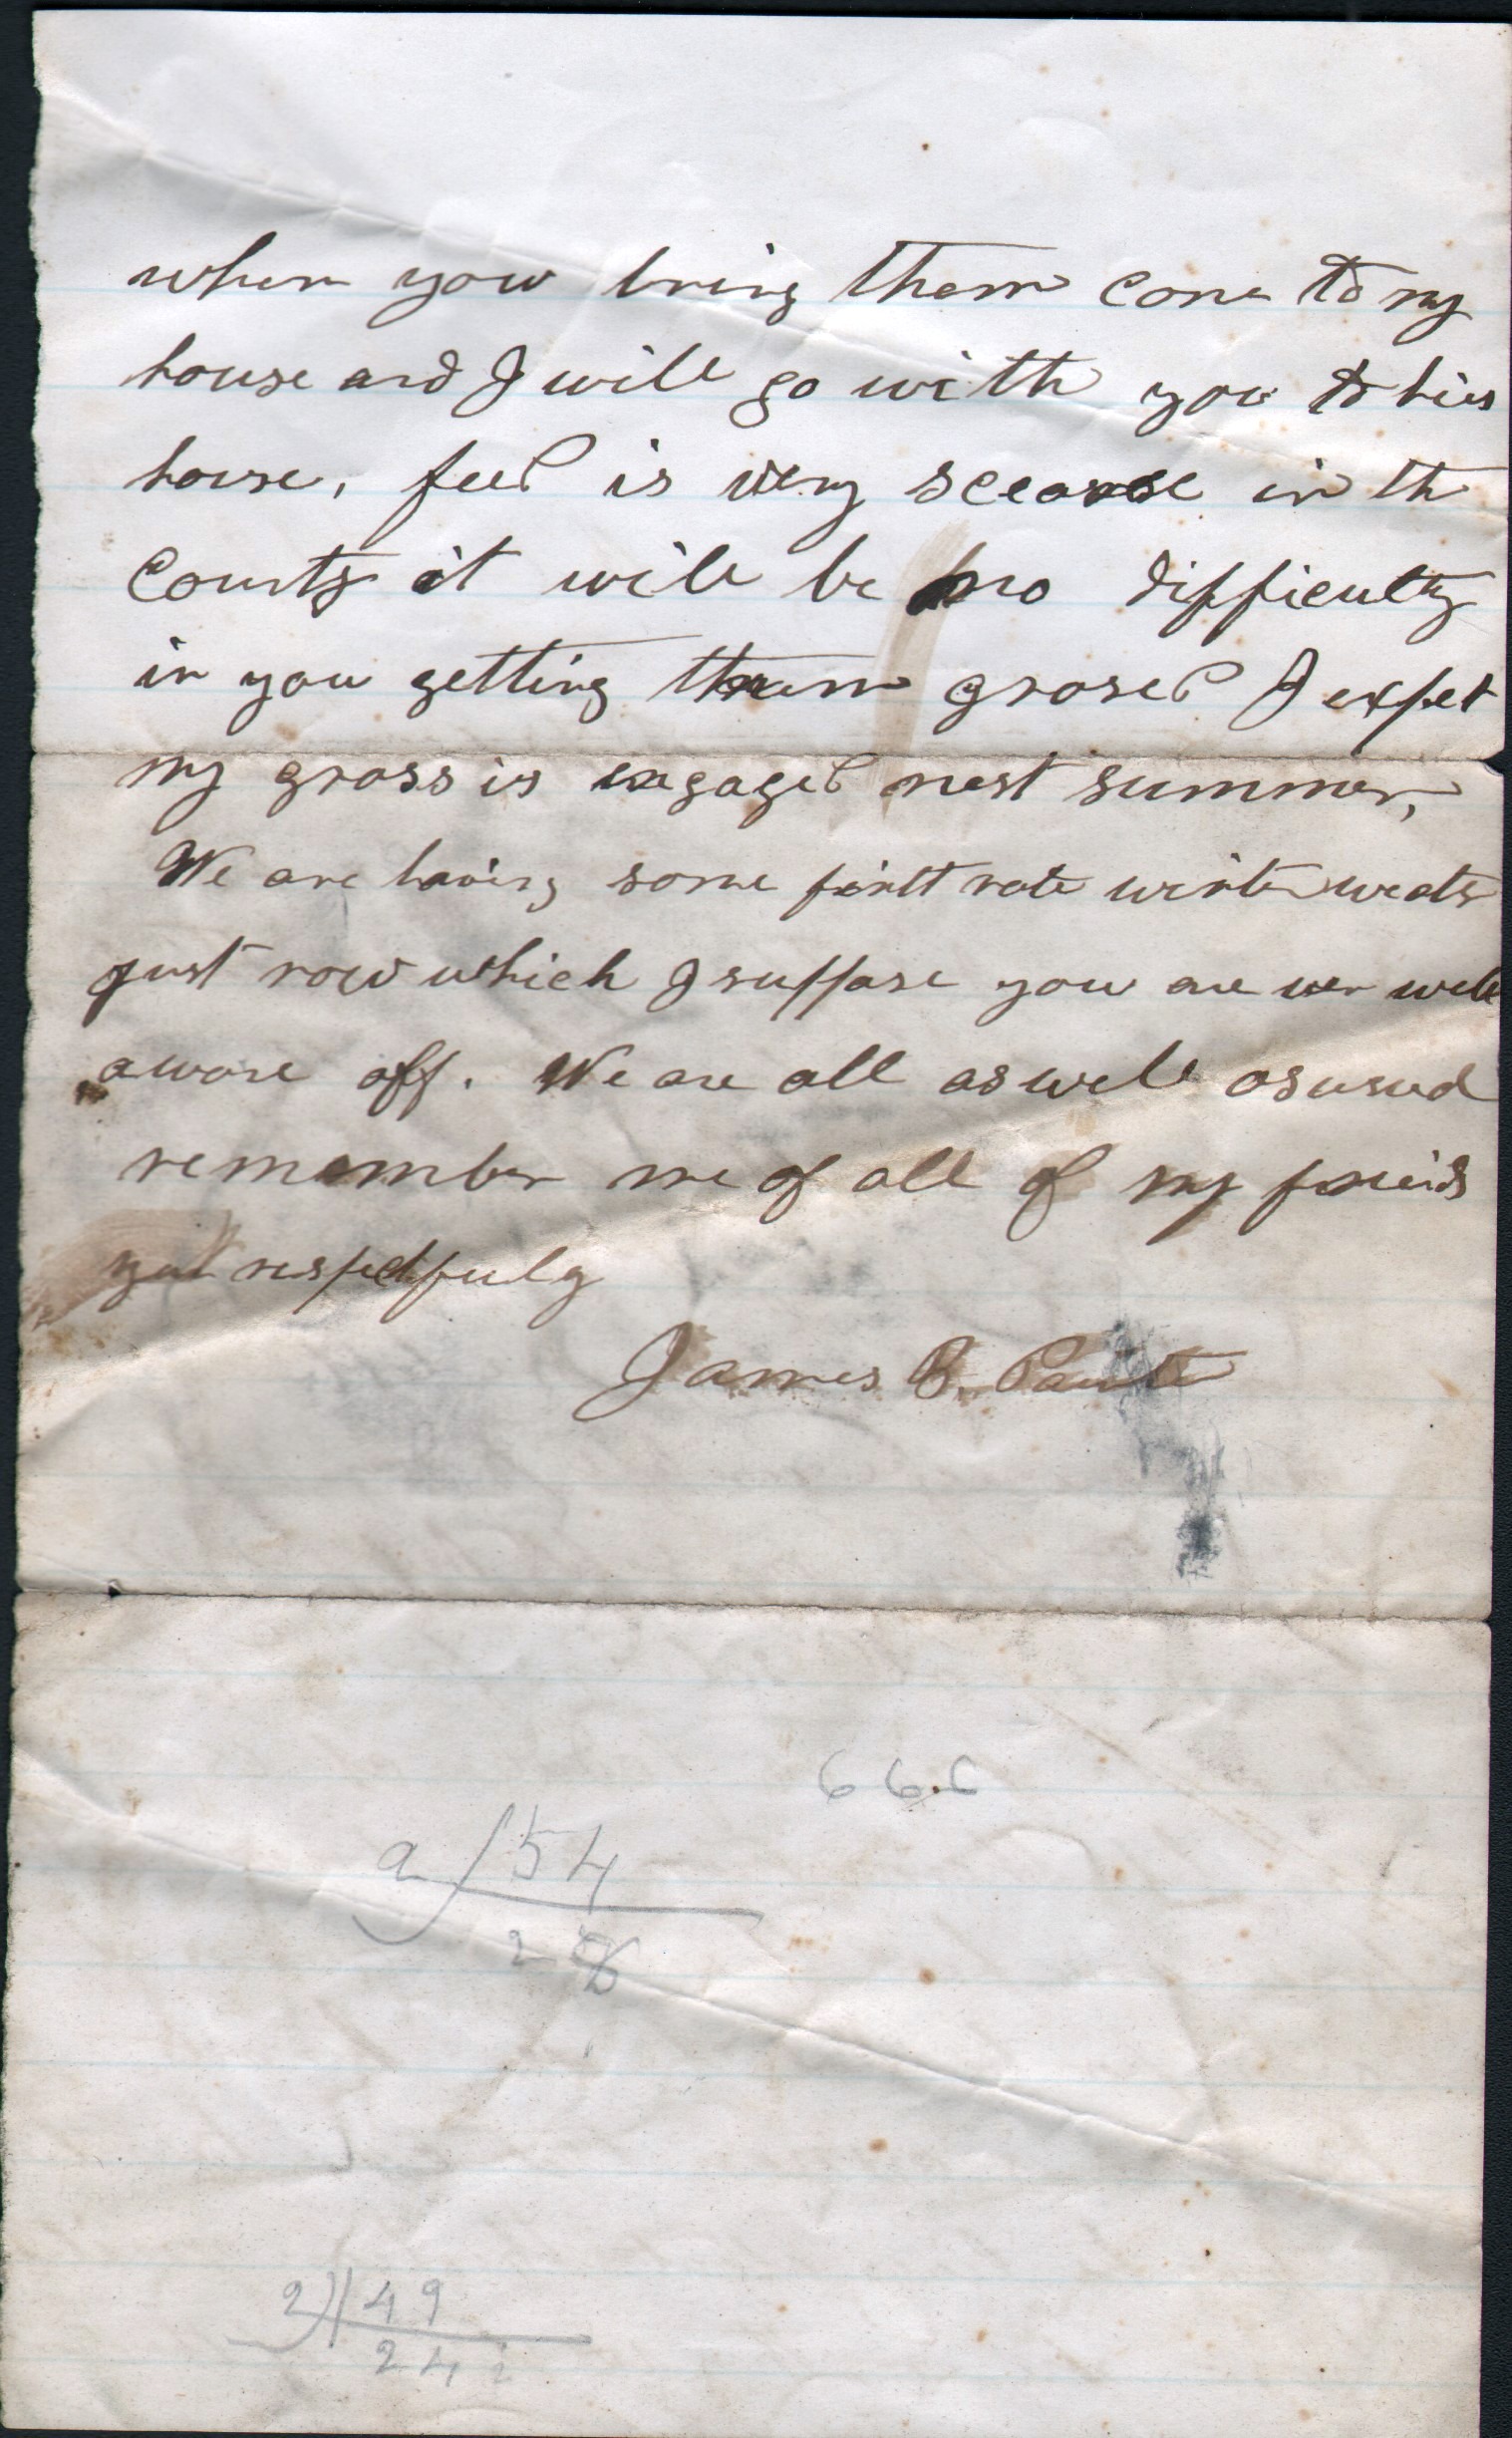 when you bring them come to my
house and I will go with you to his
house, feed is very scearse in th
County it will be no difficulty
in you getting them grased I expet
my grass is engaged nest summer,
We are having some firtt rate winter weats
just now which I suppose you are ver well
aware off. We are all as well as usual
remember me of all of my friends
respectfuly
James B.
6 6 6
2 54
2
2 49
24